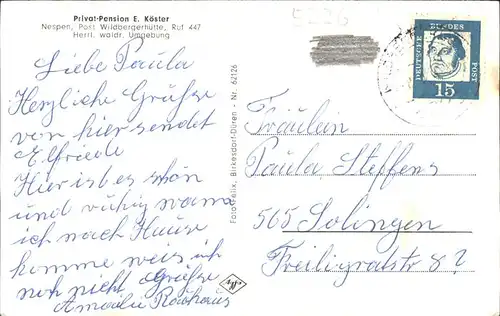 Privat-Pension E. Köster
Nespen, Post Wildbergerhütte, Ruf 447
Herrl. waldr. Umgebung
Liebe Paula
Herzliche Grüße
von hier sendet
Elfriede
Hier ist es schön
und ruhig wann
ich nach Hause
komme weis ich
noch nicht Grüße
Amalie Rauhaus
Foto-Felix, Birkesdorf-Düren - Nr. 62/126
5226
DEUTSCHE BUNDES POST
15
Fräulein
Paula Steffens
565 Solingen
Freiligratstr 8?